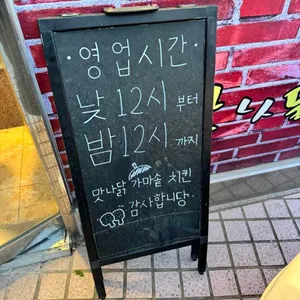 · 영업시간 ·
낮 12시 부터
밤 12시 까지
맛나닭 가마솥 치킨
감사합니당